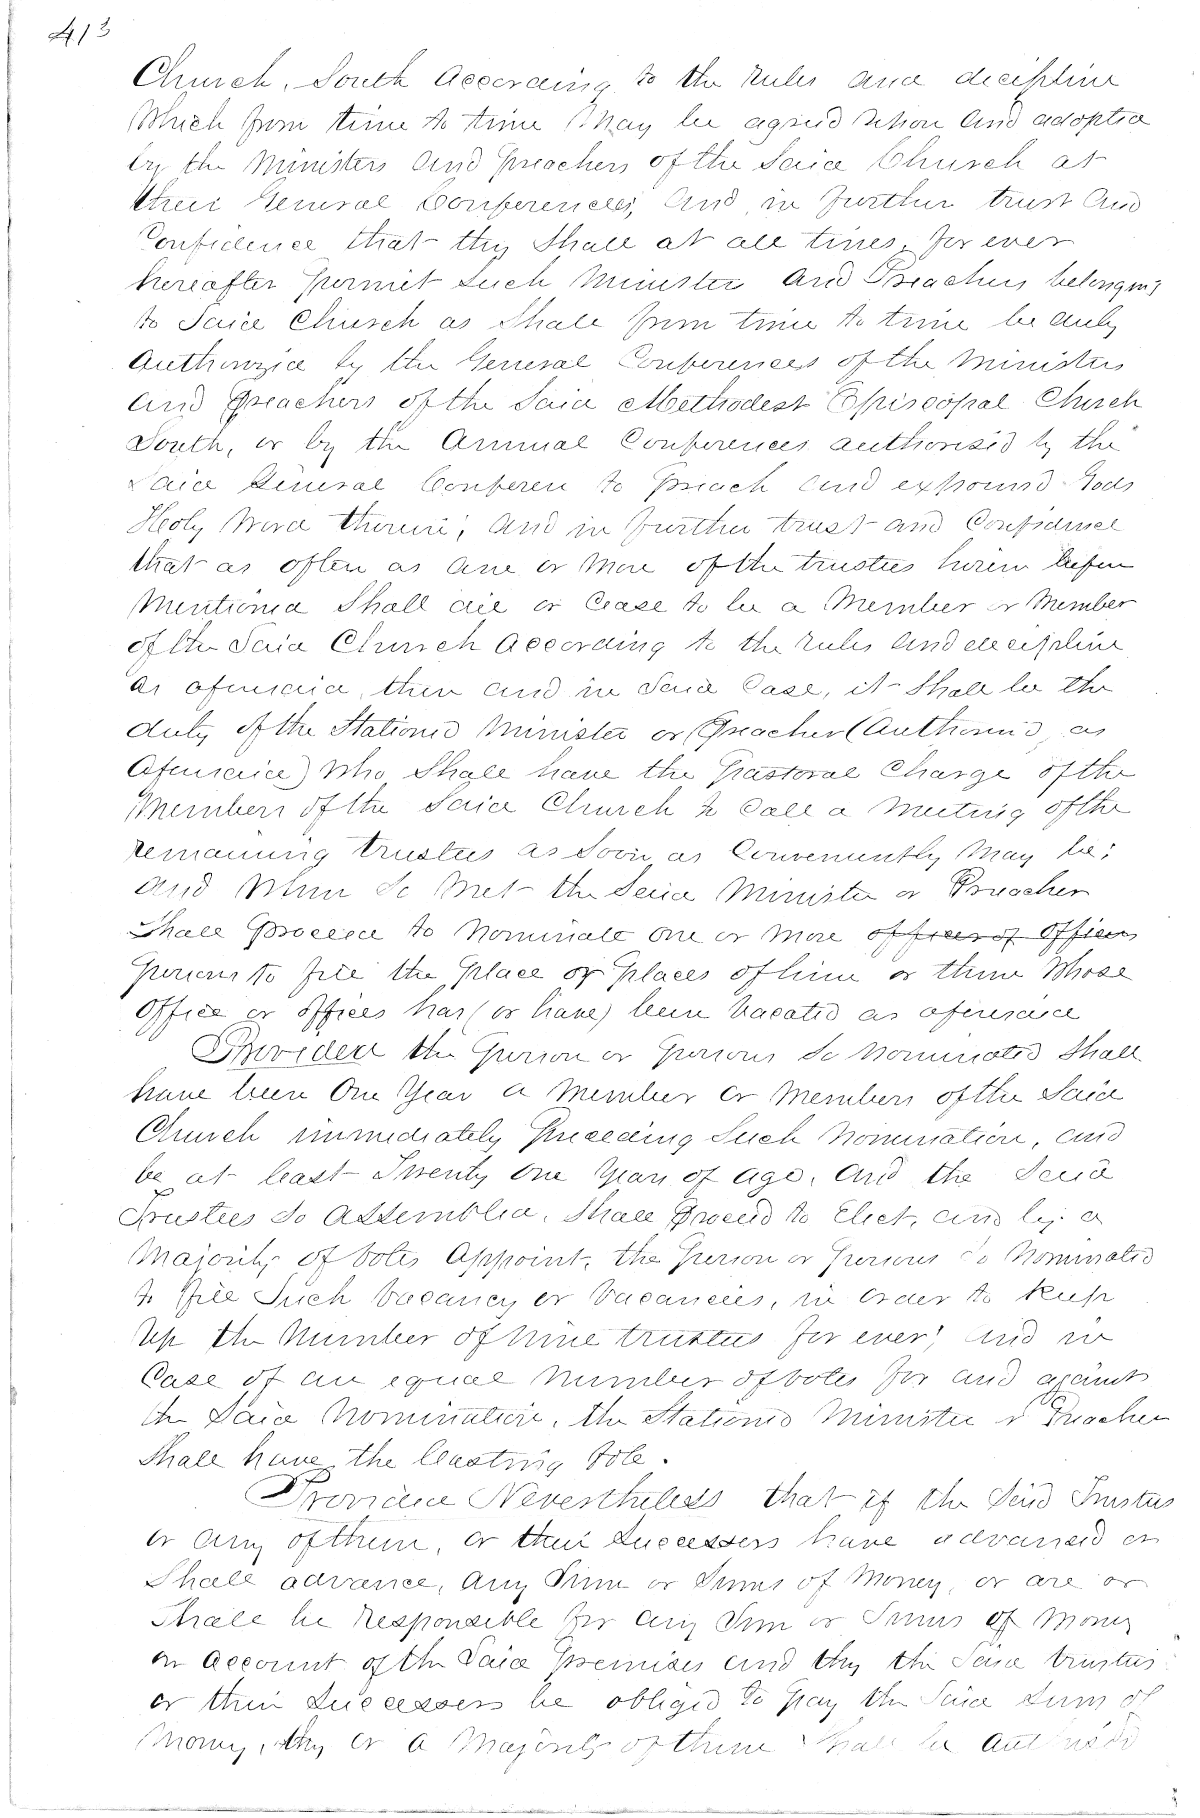 413
Church, South According to the rules and decipline
Which from time to time May be agreed upon and adopted
by the Ministers and preachers of the Said Church at
their General Conferences, And in further trust and
Confidence that thy Shall at all times, for ever
hereafter permit such Minister and Preachers belonging
to Said Church as Shall from time to time be duly
Authorized by the General Conferences of the Ministers
and preachers of the Said Methodest Episcopal Church
South, or by the Annual Conferences authorised by the
Said General Conferen to preach and expound Gods
Holy Word therein; and in further trust and Confidence
that as often as one or More of the trustees herein before
Mentioned Shall die or Cease to be a Member or Member
of the Said Church According to the rules and decipline
as aforesaid, then and in Said Case, it Shall be the
duty of the Stationed Minister or Preacher (Authorised, as
Aforesaid) Who Shall have the Pastoral Charge of the
Members of the Said Church to Call a Meeting of the
remaining trustees as Soon as Conveniently May be;
and When So Met the Said Minister or Preacher
Shall Proceed to Nominate one or More officer of Officers
persons to fill the place or places of him or them Whose
Office or offices has (or have) been Vacated as aforesaid
Provided the person or persons So Nominated Shall
have been One Year a Member or Members of the Said
Church immediately Preceding Such Nomination, and
be at least Twenty One Years of age, and the Said
Trustees So Assembled, Shall proceed to Elect, and by a
Majority of Votes Appoint, the person or persons So Nominated
to fill Such Vacancy or Vacancies, in order to Keep
Up the Number of Nine trustees for ever; and in
Case of an equal Number of Votes for and against
the Said Nomination, the Stationed Minister or Preacher
Shall have the Casting Vote.
Provided Nevertheless that if the Said Trustees
or any of them, or their Successers have advanced or
Shall advance, Any Sum or Sums of Money, or are or
Shall be Responsible for any Sum or Sums of Money
on account of the Said Premises and thy the Said trustees
or their Successers be obliged to pay the Said Sum of
Money, thy or a Majority of them Shall be Authorised